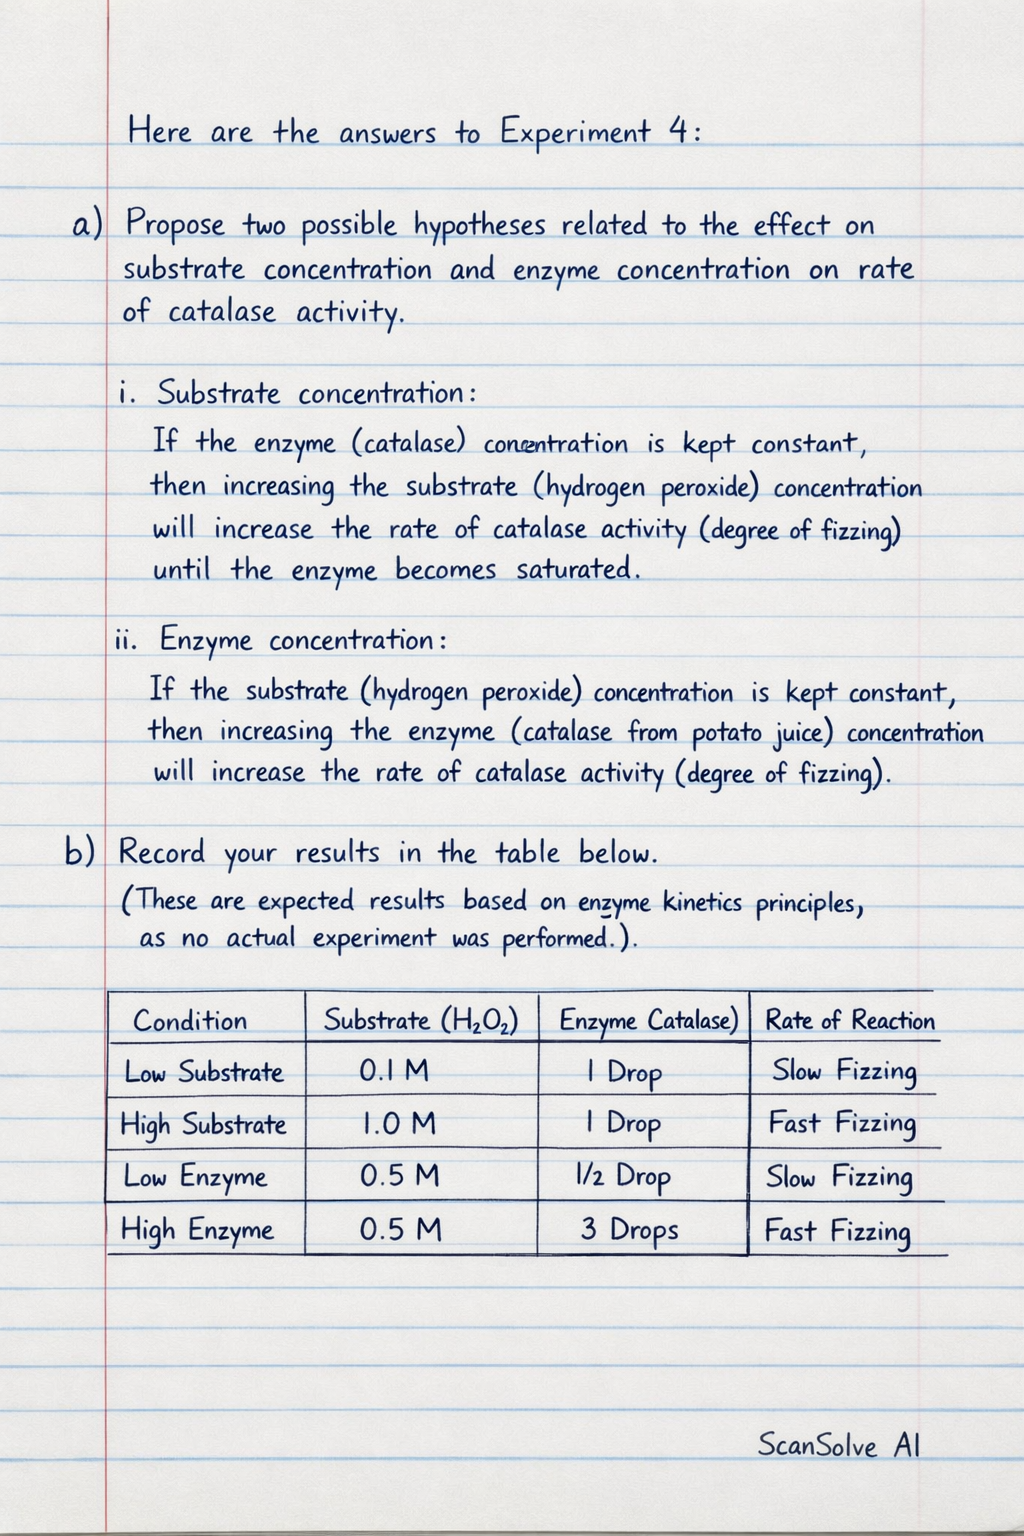 Here are the answers to Experiment 4:
a) Propose two possible hypotheses related to the effect on
substrate concentration and enzyme concentration on rate
of catalase activity.
i. Substrate concentration:
If the enzyme (catalase) concentration is kept constant,
then increasing the substrate (hydrogen peroxide) concentration
will increase the rate of catalase activity (degree of fizzing)
until the enzyme becomes saturated.
ii. Enzyme concentration:
If the substrate (hydrogen peroxide) concentration is kept constant,
then increasing the enzyme (catalase from potato juice) concentration
will increase the rate of catalase activity (degree of fizzing).
b) Record your results in the table below.
(These are expected results based on enzyme kinetics principles,
as no actual experiment was performed.).
Condition Substrate (H₂O₂) Enzyme Catalase) Rate of Reaction
Low Substrate 0.1 M 1 Drop Slow Fizzing
High Substrate 1.0 M 1 Drop Fast Fizzing
Low Enzyme 0.5 M 1/2 Drop Slow Fizzing
High Enzyme 0.5 M 3 Drops Fast Fizzing
ScanSolve AI